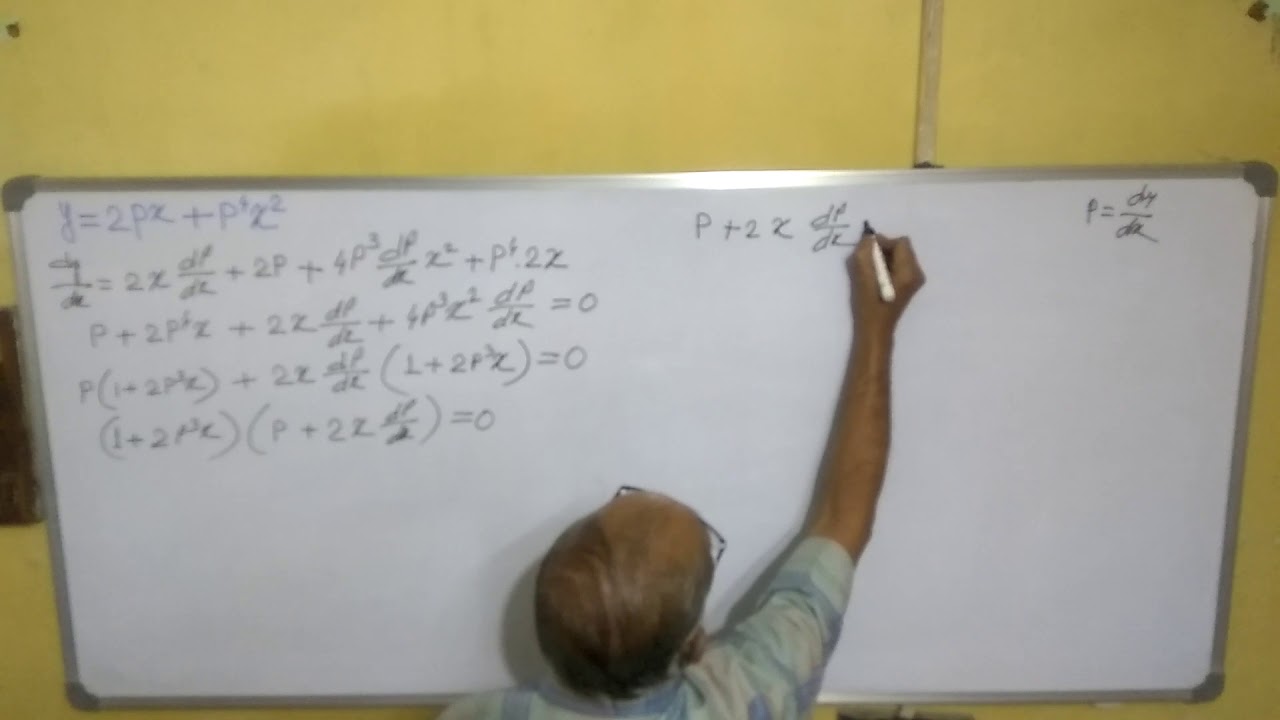 y = 2px + p⁴x²
dy/dx = 2x dp/dx + 2p + 4p³ dp/dx x² + p⁴.2x
p + 2p⁴x + 2x dp/dx + 4p³x² dp/dx = 0
p(1+2p³x) + 2x dp/dx (1+2p³x) = 0
(1+2p³x)(p + 2x dp/dx) = 0
p + 2x dp/dx
p = dy/dx